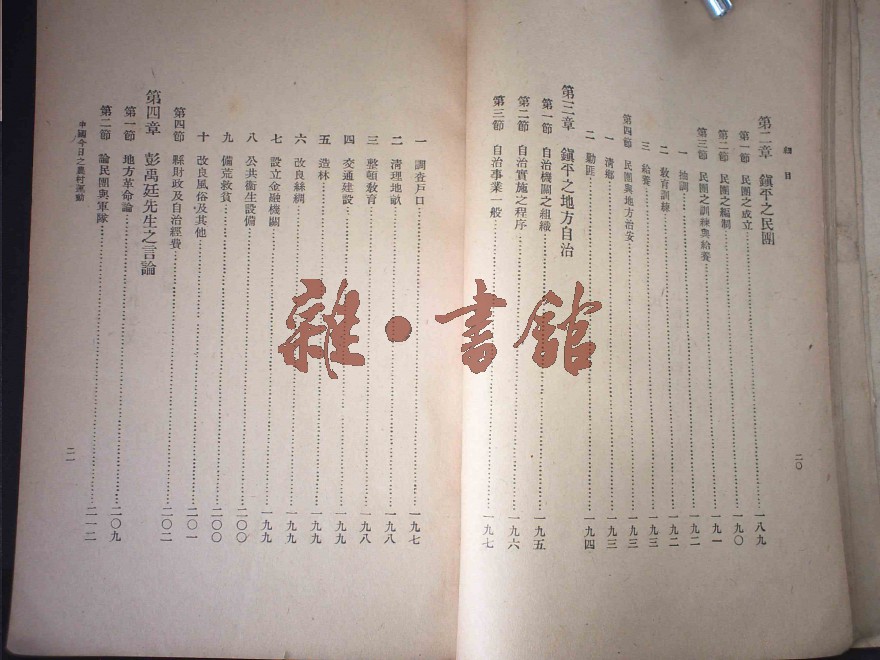 細目
第二章　鎮平之民團
第一節　民團之成立……一八九
第二節　民團之編制……一九〇
第三節　民團之訓練與給養……一九一
一　抽調……一九二
二　敎育訓練……一九二
三　給養……一九三
第四節　民團與地方治安……一九三
一　清鄉……一九三
二　勦匪……一九四
第三章　鎮平之地方自治
第一節　自治機關之組織……一九五
第二節　自治實施之程序……一九六
第三節　自治事業一般……一九七
二〇
一　調查戶口……一九七
二　清理地畝……一九八
三　整頓敎育……一九八
四　交通建設……一九九
五　造林……一九九
六　改良絲綢……一九九
七　設立金融機關……一九九
八　公共衞生設備……二〇〇
九　備荒救貧……二〇〇
十　改良風俗及其他……二〇一
第四節　縣財政及自治經費……二〇二
第四章　彭禹廷先生之言論
第一節　地方革命論……二〇九
第二節　論民團與軍隊……二一二
中國今日之農村運動
二一
雜·書館